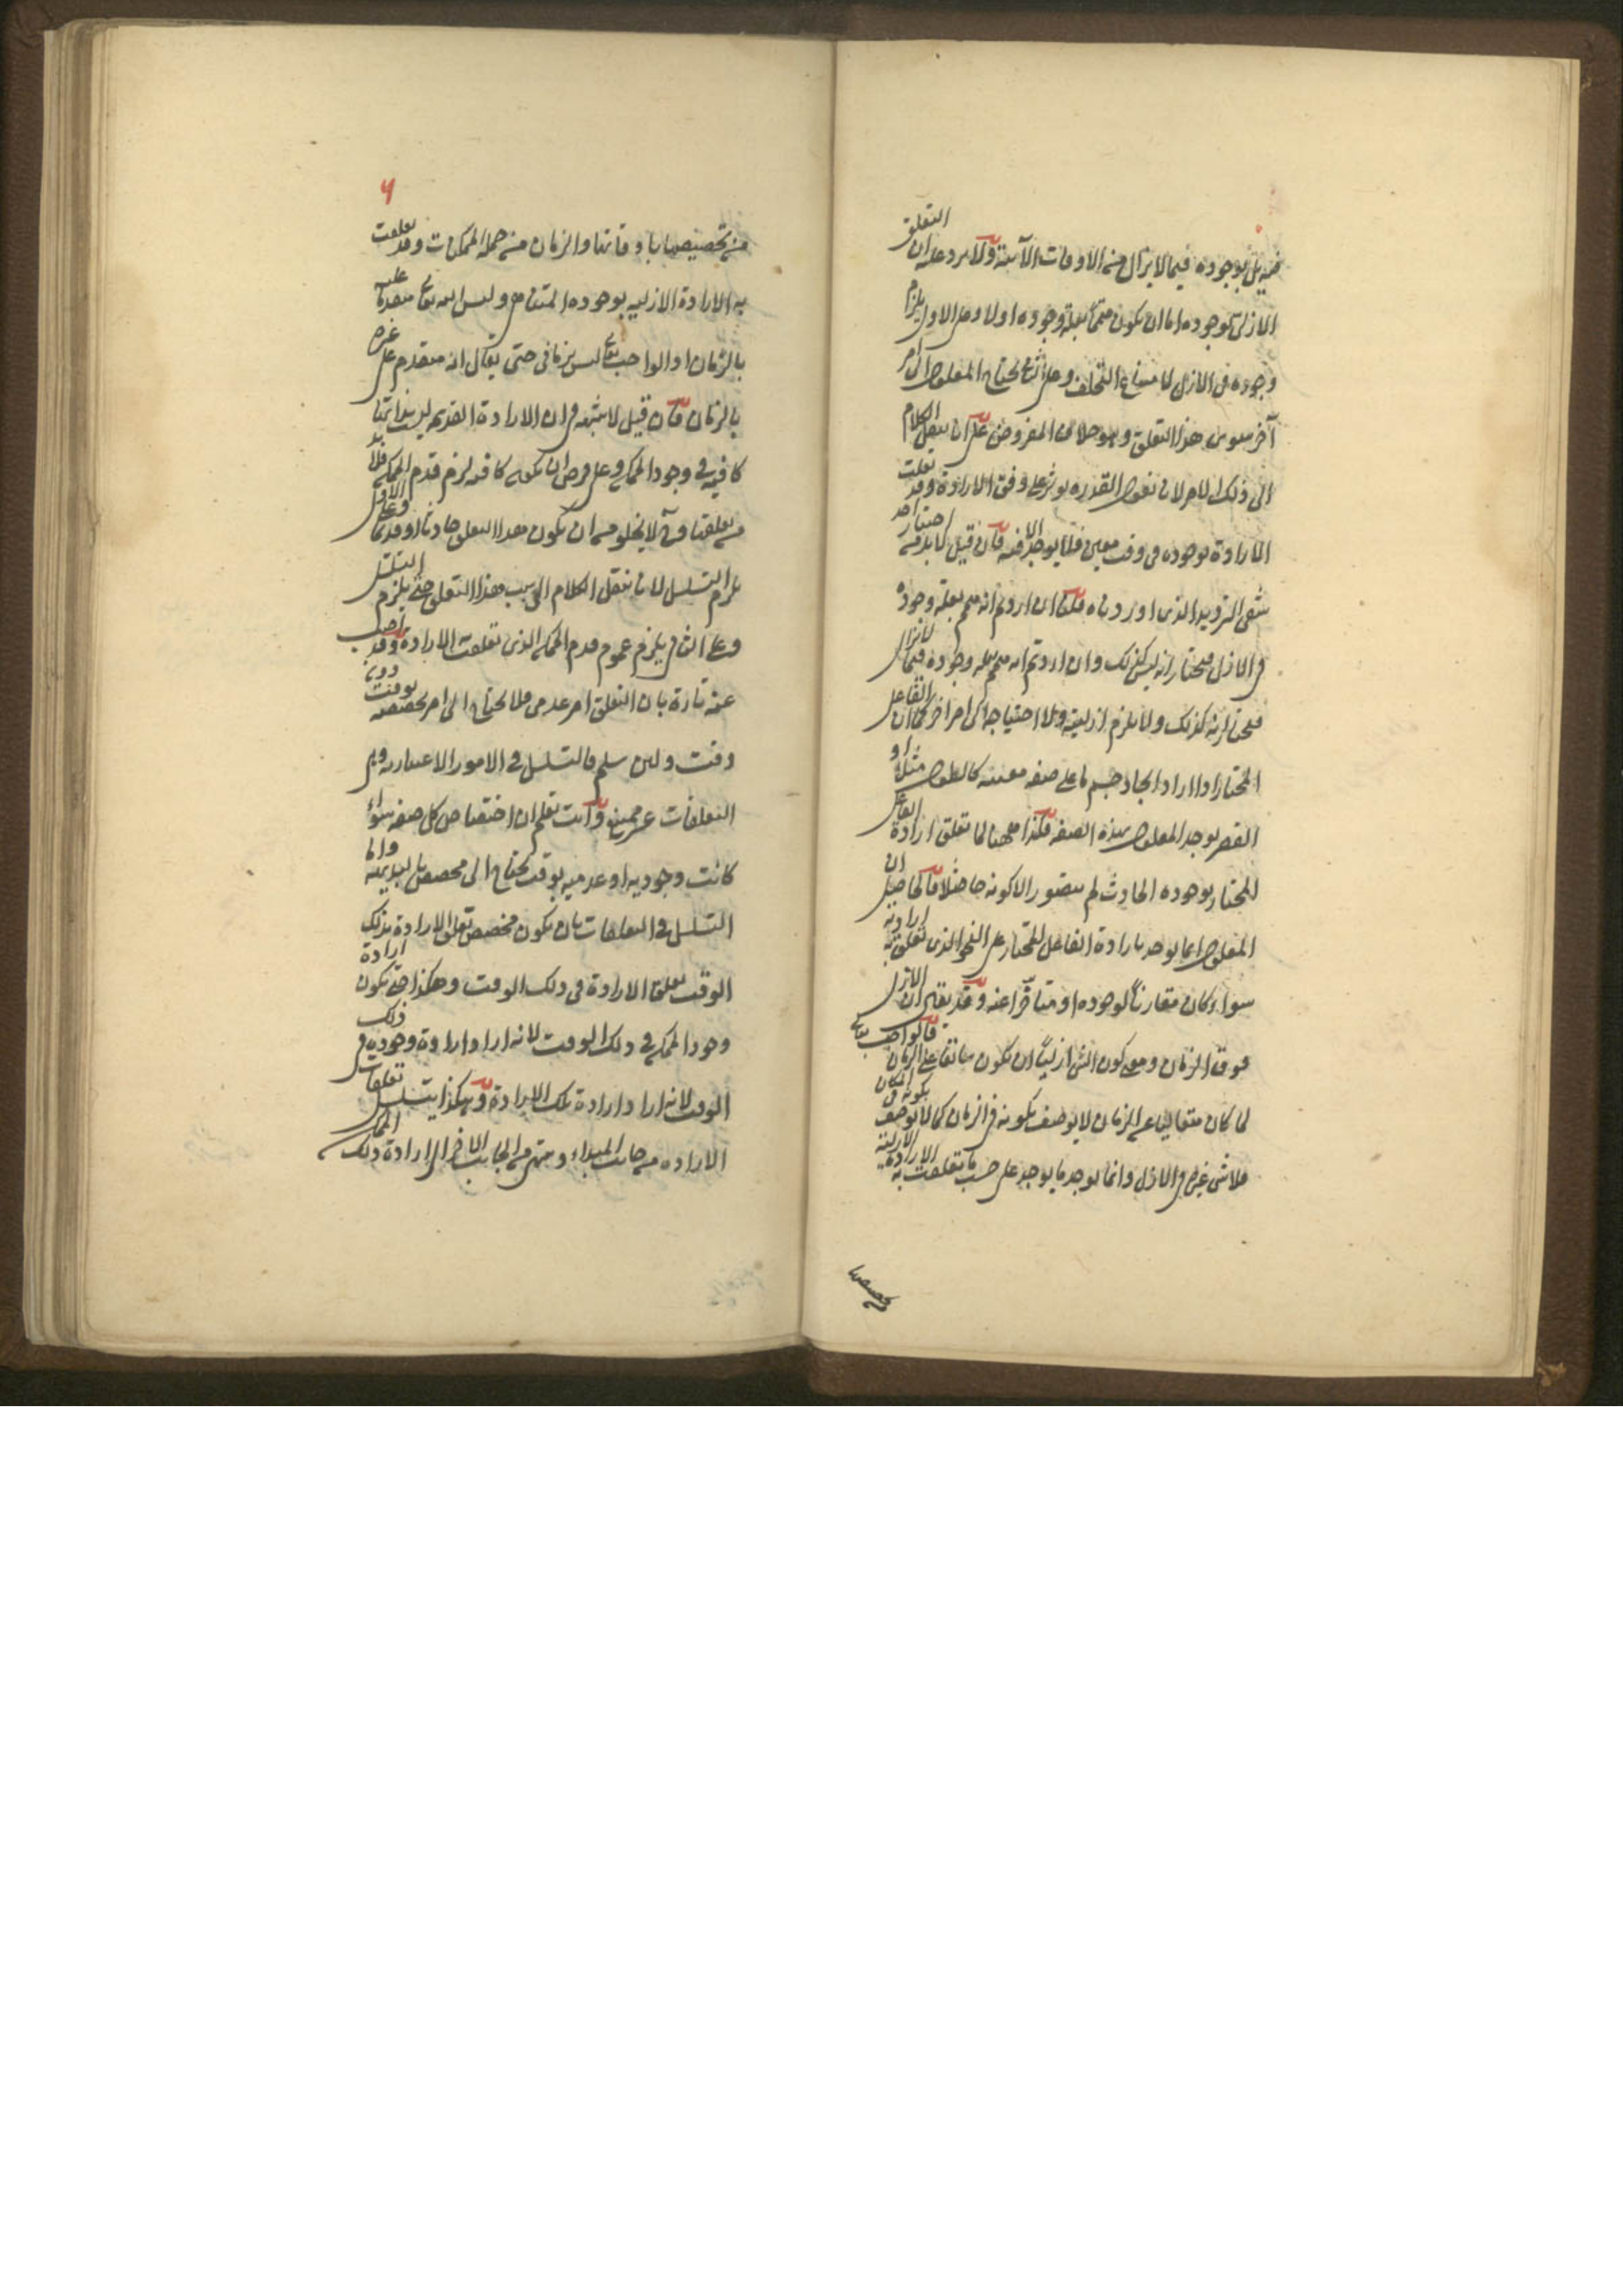 فيه بل بوجوده فيما لا يزال من الاوقات الآتية ولا يرد عليه ان التعلق
الازلى بوجوده اما ان يكون متمما لعلة وجوده اولا وعلى الاول يلزم
وجوده فى الازل لامتناع التخلف وعلى الثانى يحتاج المعلول الى امر
آخر سوى هذا التعلق وهو خلاف المفروض على انا ننقل الكلام
الى ذلك الامر لانا نقول القدرة يؤثر على وفق الارادة وقد تعلقت
الارادة بوجوده فى وقت معين فلا يوجد الا فيه فان قيل لا بد من اختيار احد
شقى الترديد الذى اوردناه قلنا ان اردتم انه متمم لعلة وجوده
فى الازل فنختار انه ليس كذلك وان اردتم انه متمم لعلة وجوده فيما لا يزال
فنختار انه كذلك ولا يلزم ازليته ولا احتياجه الى امر اخر كما ان الفاعل
المختار اذا اراد ايجاد جسم ما على صفة معينة كالطول مثلا او
القصر يوجد المعلول بهذه الصفة فكذا ههنا لما تعلق ارادة الفاعل
المختار بوجوده الحادث لم يتصور الا كونه حاصلا فالحاصل ان
المعلول انما يوجد بارادة الفاعل المختار على النحو الذى تعلق به ارادته
سواء كان مقارنا لوجوده او متأخرا عنه وقد يقال ان الازل
فوق الزمان ومعنى كون الشئ ازليا ان يكون سابقا على الزمان فالواجب تعالى
لما كان متعاليا عن الزمان لا يوصف بكونه فى الزمان كما لا يوصف بكونه فى المكان
فلا شئ غيره فى الازل وانما يوجد ما يوجد على حسب ما تعلقت به الارادة الازلية
من تخصيصها
٦
من تخصيصها باوقاتها والزمان من جملة الممكنات وقد تعلقت
به الارادة الازلية بوجوده المتناهى وليس الله تعالى متقدما عليه
بالزمان اذ الواجب تعالى ليس بزمانى حتى يقال انه متقدم على غيره
بالزمان فان قيل لا شبهة فى ان الارادة القديمة ليست بذاتها
كافية فى وجود الممكن وعلى فرض ان يكون كافية لزم قدم الممكن فلا
من تعلقها وح لا يخلو من ان يكون هذا التعلق حادثا او قديما وعلى الاول
يلزم التسلسل لانا ننقل الكلام الى سبب هذا التعلق حتى يلزم التسلسل
وعلى الثانى يلزم عموم قدم الممكن الذى تعلقت الارادة به وقد اجيب
عنه تارة بان التعلق امر عدمى فلا يحتاج الى امر يخصصه بوقت دون
وقت ولئن سلم فالتسلسل فى الامور الاعتبارية وهى
التعلقات غير ممتنع وانت تعلم ان اختصاص كل صفة سواء
كانت وجودية او عدمية بوقت يحتاج الى مخصص بالبديهة واما
التسلسل فى التعلقات بان يكون مخصص تعلق الارادة بذلك
الوقت تعلق الارادة فى ذلك الوقت وهكذا حتى يكون ارادة
وجود الممكن فى ذلك الوقت لانه اراد ارادة وجوده فى ذلك
الوقت لانه اراد ارادة تلك الارادة وهكذا يتسلسل تعلقات
الارادة من جانب المبداء وينتهى من الجانب الاخر الى ارادة ذلك الممكن